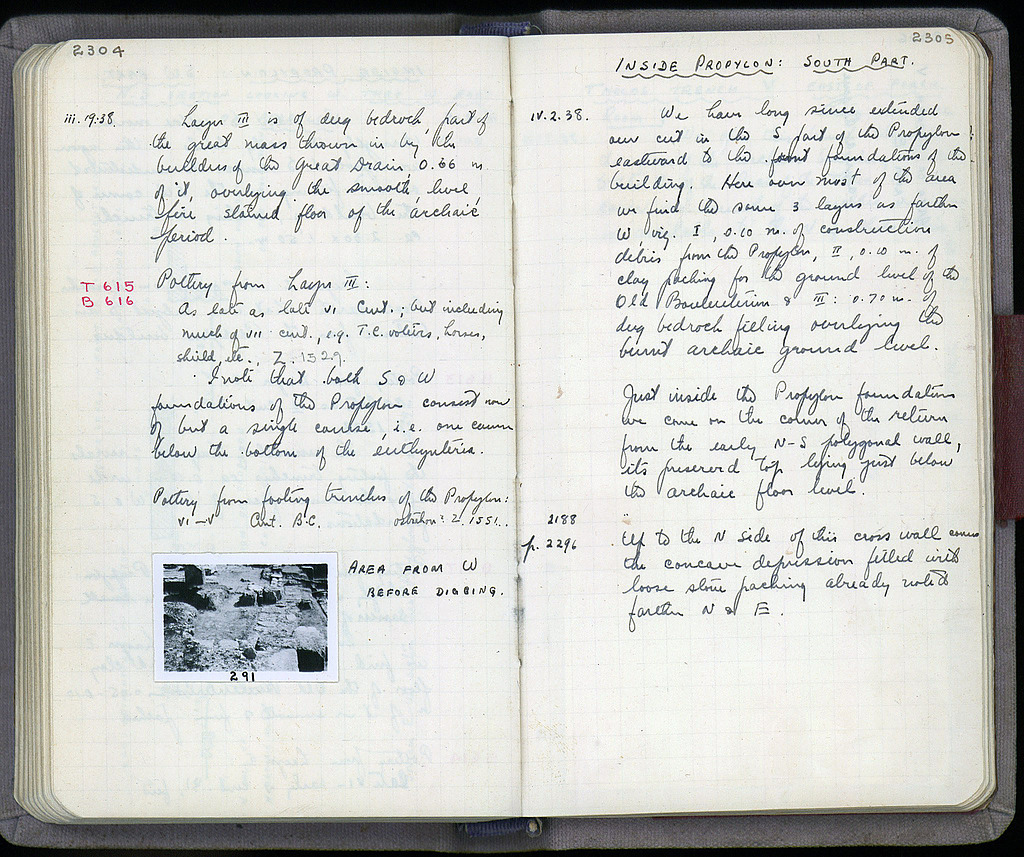 2304
iii.19.38. Layer III is of dug bedrock, part of
the great mass thrown in by the
builders of the Great Drain, 0.66 m
of it, overlying the smooth level
fire stained floor of the archaic
period.
T 615
B 616
Pottery from Layer III:
As late as late VI Cent.; but including
much of VII cent., e.g. T.C. votives, horses,
shield etc., Z 1529.
I note that both S & W
foundations of the Propylon consist now
of but a single course, i.e. one course
below the bottom of the euthynteria.
Pottery from footing trenches of the Propylon:
VI–V Cent. B.C. ostrakon: Z 1551.
AREA FROM W
BEFORE DIGGING.
291
2305
INSIDE PROPYLON: SOUTH PART.
IV.2.38. We have long since extended
our cut in the S part of the Propylon
eastward to the front foundations of the
building. Here over most of the area
we find the same 3 layers as farther
W, viz. I, 0.10 m. of construction
debris from the Propylon, II, 0.10 m. of
clay packing for the ground level of the
Old Bouleuterion & III: 0.70 m. of
dug bedrock filling overlying the
burnt archaic ground level.
Just inside the Propylon foundation
we come on the corner of the return
from the early N-S polygonal wall,
its preserved top lying just below
the archaic floor level.
2188
p. 2296
Up to the N side of this cross wall comes
the concave depression filled with
loose stone packing already noted
farther N & E.